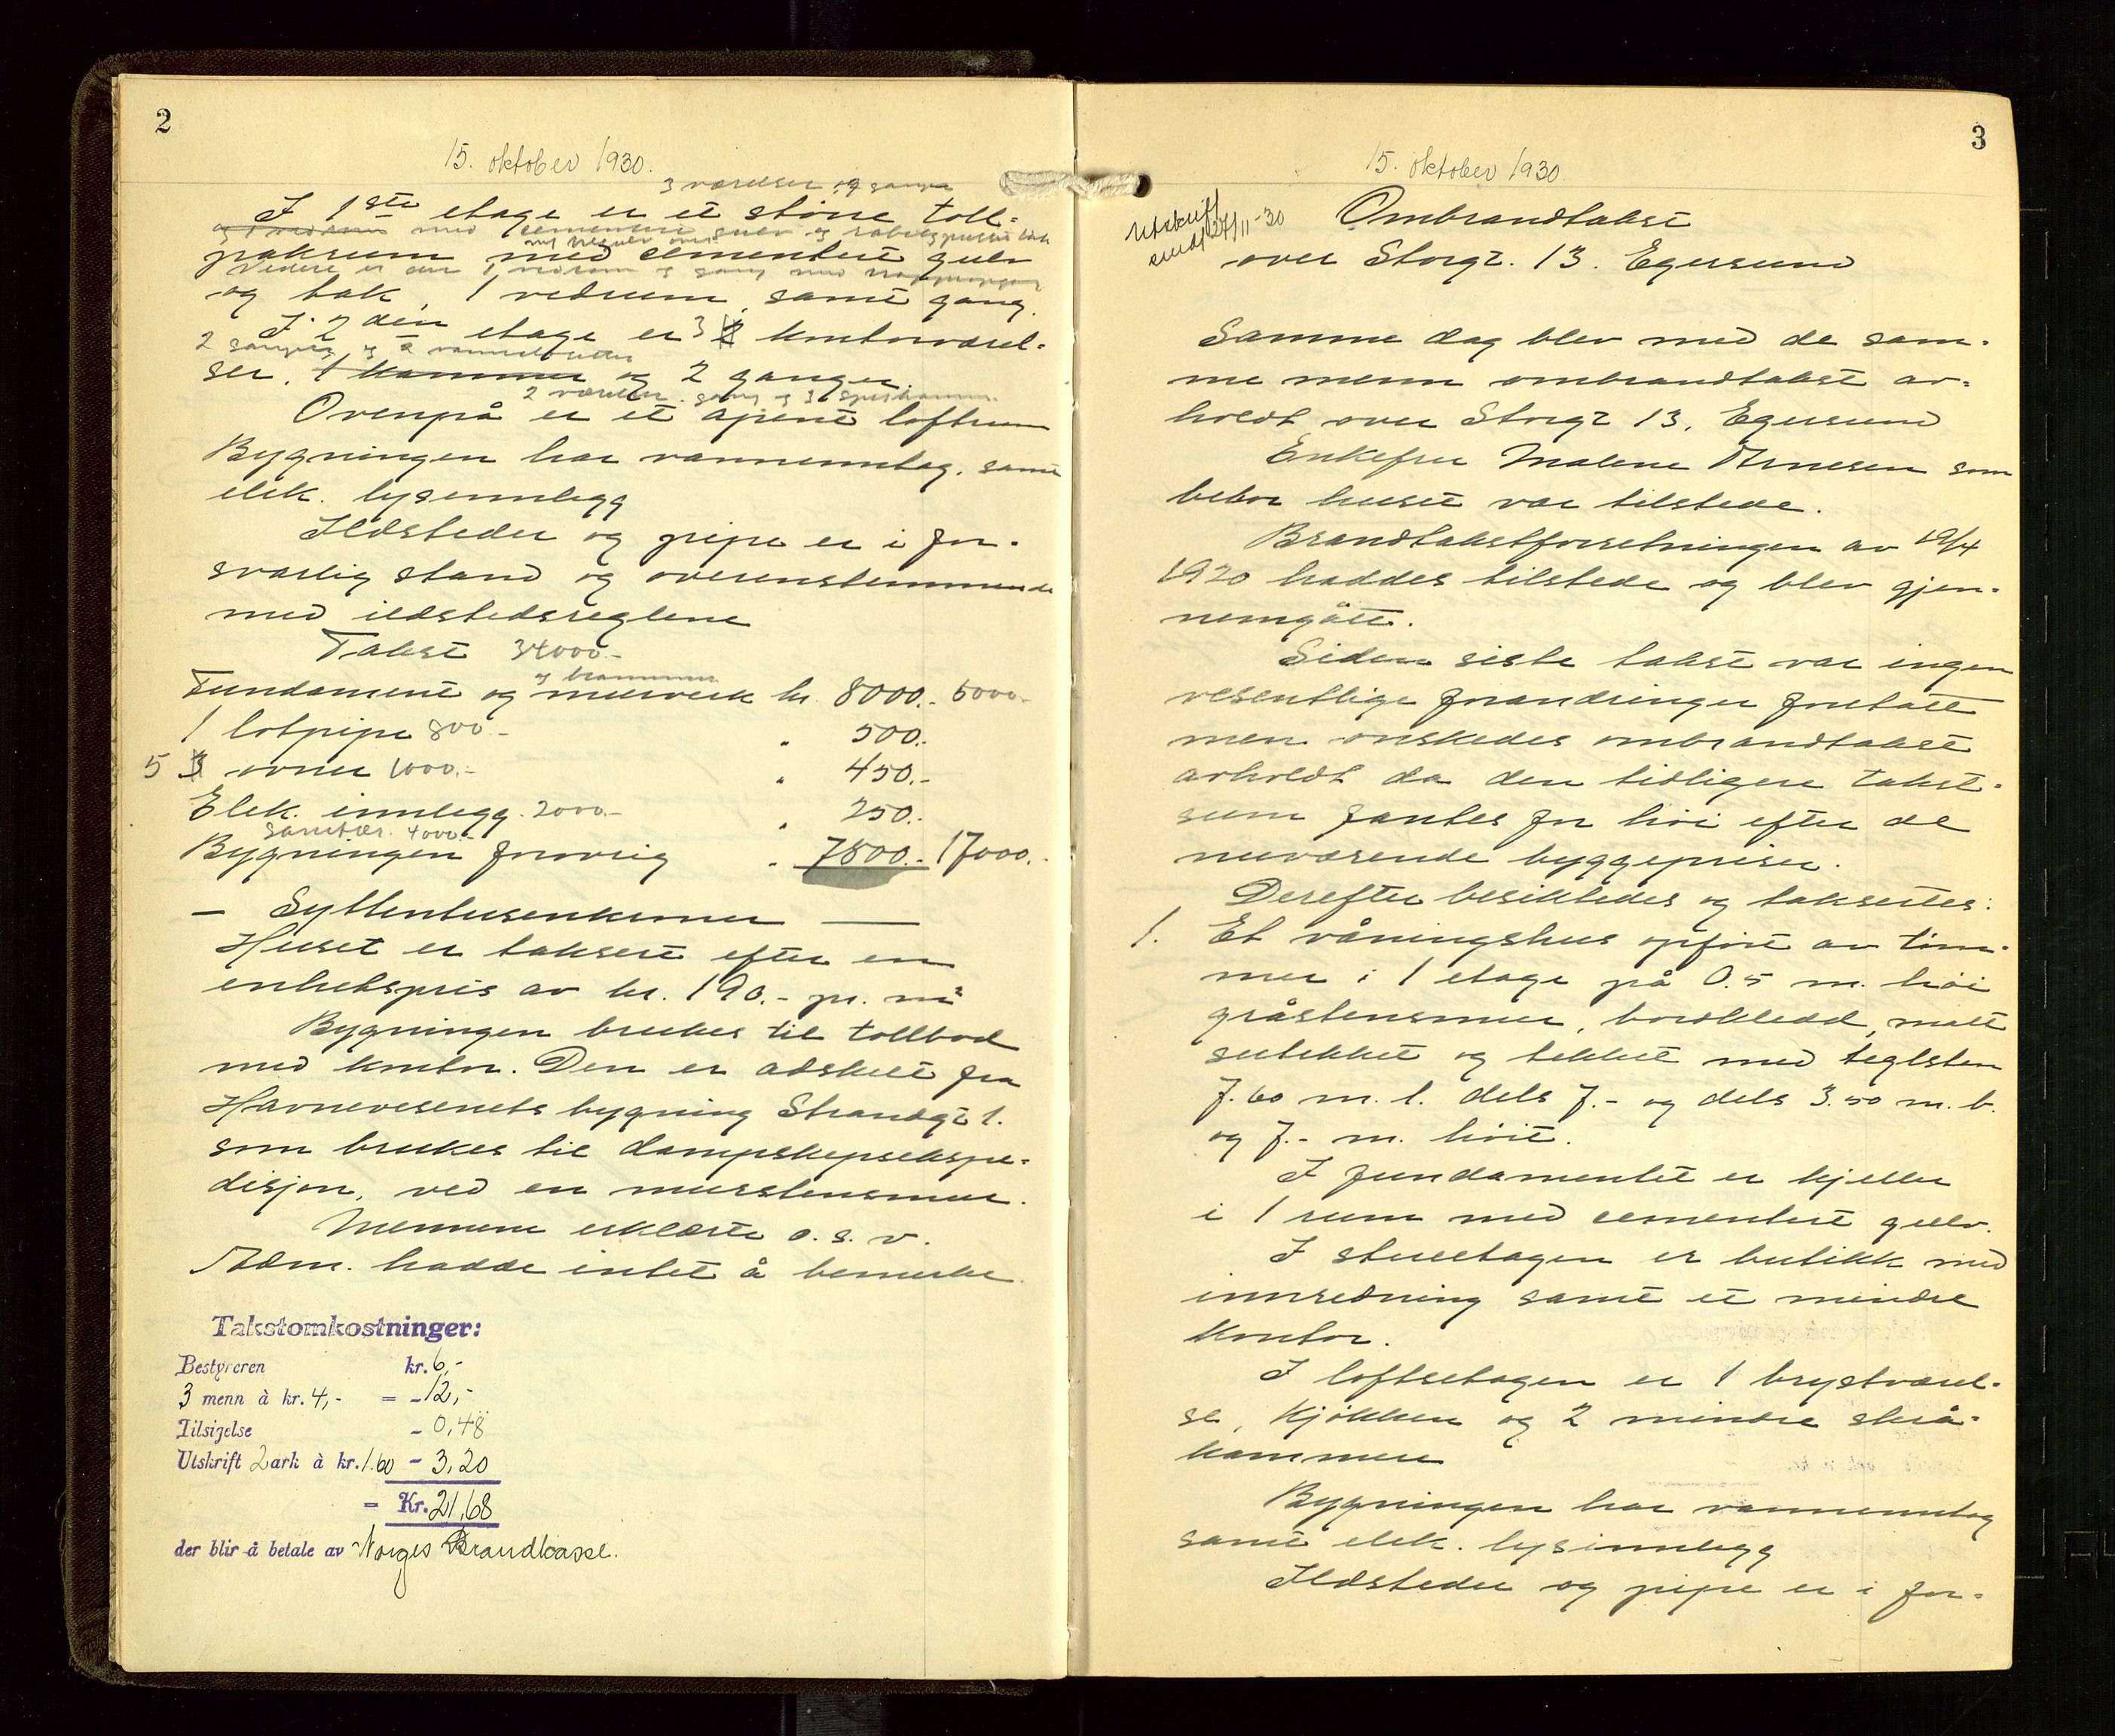 2
15. oktober 1930.
3 værelser og gang
I 1ste etage er et større toll-
og 1 vedrum med cementert gulv og
pakrum med cementert gulv
Videre er der 1 vedrum og gang med
og tak, 1 vedrum, samt gang.
I 2den etage er 3 2 kontorværel-
2 ganger og 2
ser, 1 kammer og 2 ganger.
2 værelser, gang og 3
Ovenpå er et åpent loftrum
Bygningen har vanninntag, samt
elek. lysinnlegg
Ildsteder og pipe er i for-
svarlig stand og overenstemmende
med ildstedsreglene
Takst 34000.-
Fundament og murverk kr. 8000.- 5000.-
1 lotpipe 800.- " 500.-
5 3 ovner 1000.- " 450.-
Elek. innlegg. 2000.- " 250.-
4000.-
Bygningen forøvrig " 7800.- 17000.-
— Syttentusenkroner —
Huset er taksert efter en
enhetspris av kr. 190.- pr. m²
Bygningen brukes til tollbod
med kontor. Den er adskilt fra
Havnevesenets bygning Strandgt 1.
som brukes til dampskipsekspe-
disjon, ved en murstensmur.
Mennene erklærte o. s. v.
Adm. hadde intet å bemerke.
Takstomkostninger:
Bestyreren kr. 6,-
3 menn à kr. 4,- = - 12,-
Tilsigelse - 0,48
Utskrift 2 ark à kr. 1.60 - 3,20
= Kr. 21,68
der blir å betale av Norges Brandkasse.
3
15. oktober 1930
Utskrift
sendt 27/11-30
Ombrandtakst
over Storgt. 13. Egersund
Samme dag blev med de sam-
me menn ombrandtakst av-
holdt over Storgt 13, Egersund
Enkefru Malene Arnesen som
bebor huset var tilstede.
Brandtakstforretningen av 19/4
1920 haddes tilstede og blev gjen-
nemgått.
Siden siste takst var ingen
vesentlige forandringer foretatt
men ønskedes ombrandtakst
avholdt da den tidligere takst-
sum fantes for høi efter de
nuværende byggepriser.
Derefter besiktedes og taksertes:
1. Et våningshus opført av tøm-
mer i 1 etage på 0.5 m. høi
gråstensmur, bordkledd, malt
sutekket og tekket med teglsten
7.60 m. l. dels 7.- og dels 3.50 m. b.
og 7.- m. høit.
I fundamentet er kjeller
i 1 rum med cementert gulv.
I stueetagen er butikk med
innredning samt et mindre
kontor.
I loftsetagen er 1 brystværel-
se, kjøkken og 2 mindre skrå-
kammere
Bygningen har vanninntag
samt elek. lysinnlegg
Ildsteder og pipe er i for-